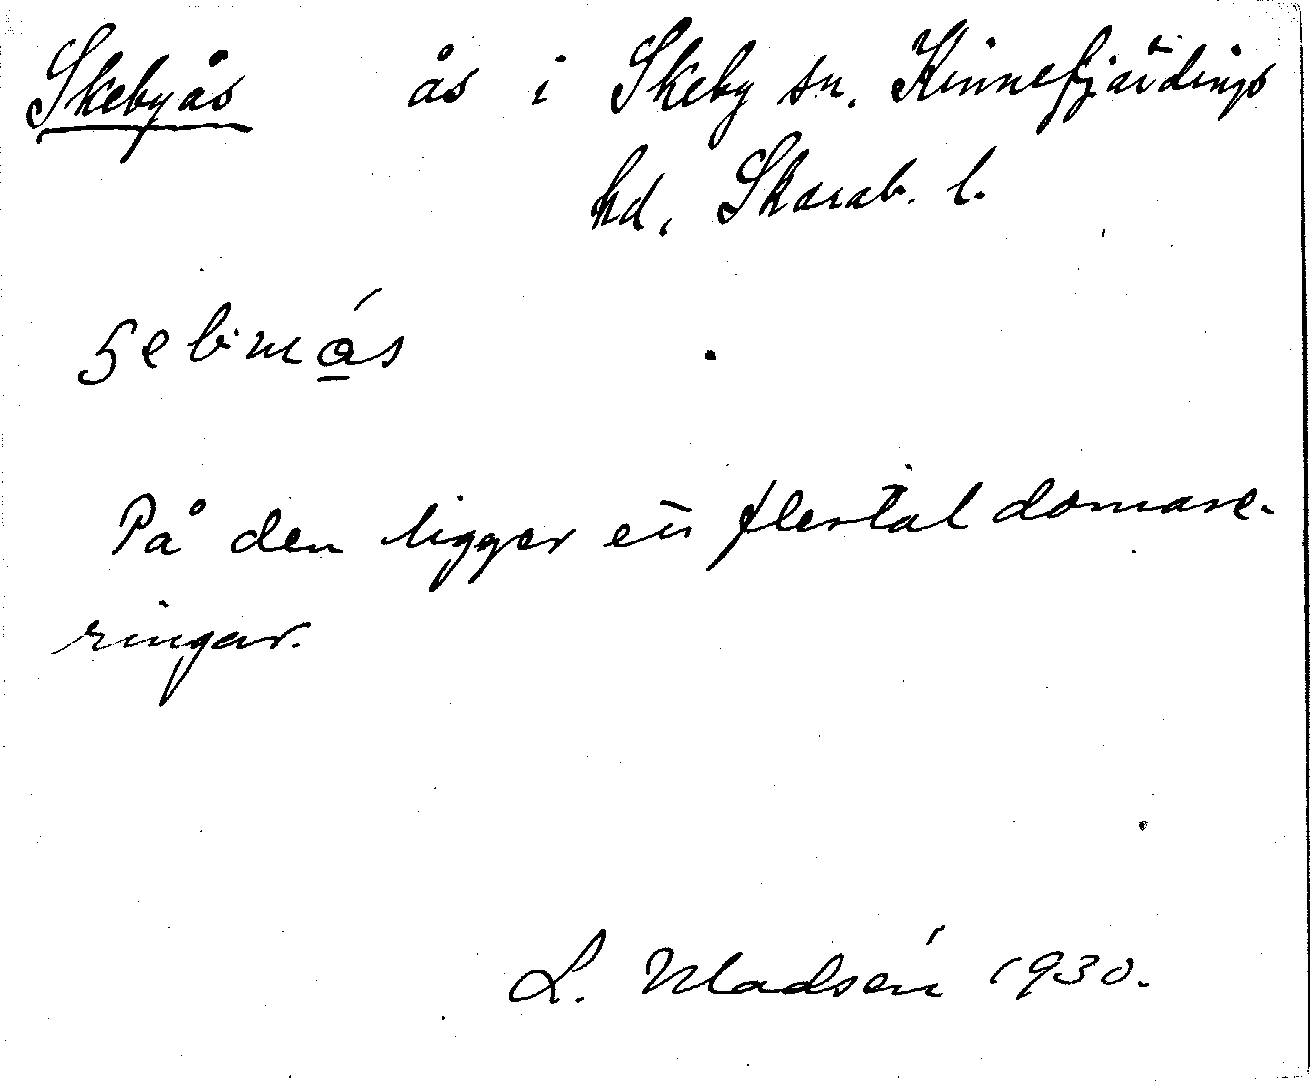 Skebyås ås i Skeby sn. Kinnefjärdings
hd, Skarab. l.
På den ligger ett flertal domare-
ringar.
L. Madsén 1930.